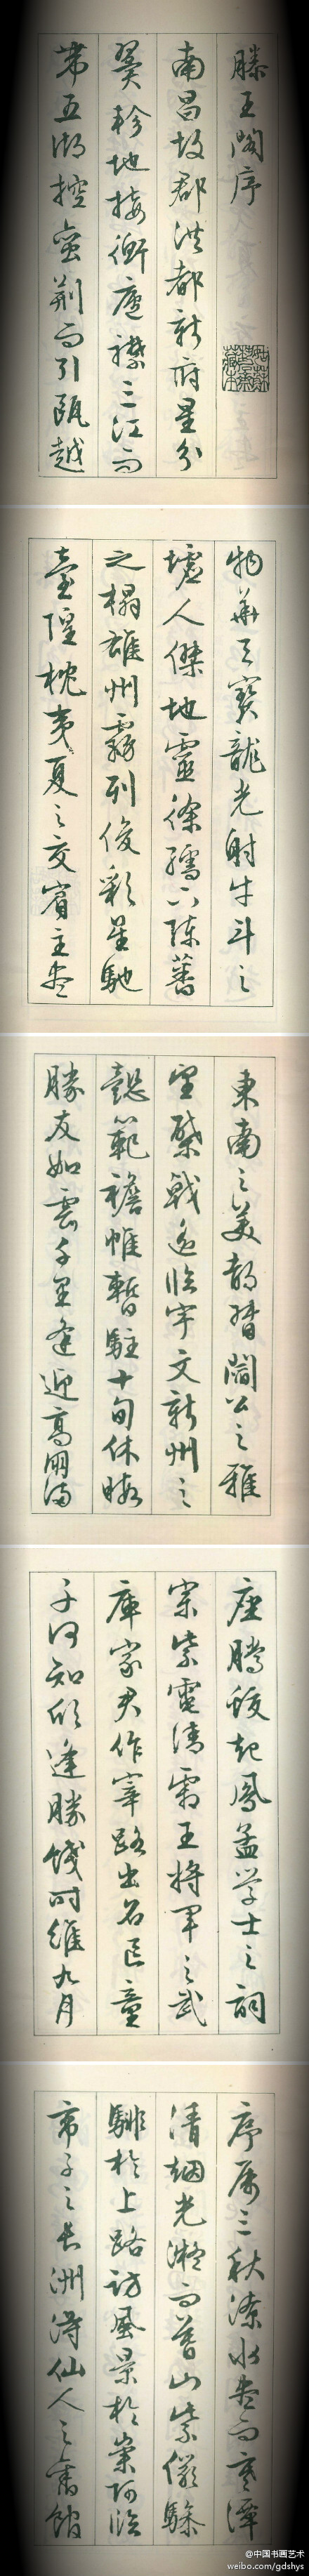 滕王閣序
南昌故郡洪都新府星分
翼軫地接衡廬襟三江而
帶五湖控蠻荊而引甌越
物華天寶龍光射牛斗之
墟人傑地靈徐孺下陳蕃
之榻雄州霧列俊彩星馳
臺隍枕夷夏之交賓主盡
東南之美都督閻公之雅
望棨戟遙臨宇文新州之
懿範襜帷暫駐十旬休暇
勝友如雲千里逢迎高朋滿
座騰蛟起鳳孟学士之詞
宗紫電清霜王將軍之武
庫家君作宰路出名區童
子何知躬逢勝餞时維九月
序属三秋潦水盡而寒潭
清烟光凝而暮山紫儼驂
騑於上路訪風景於崇阿臨
帝子之長洲得仙人之舊館
@中国书画艺术
weibo.com/gdshys